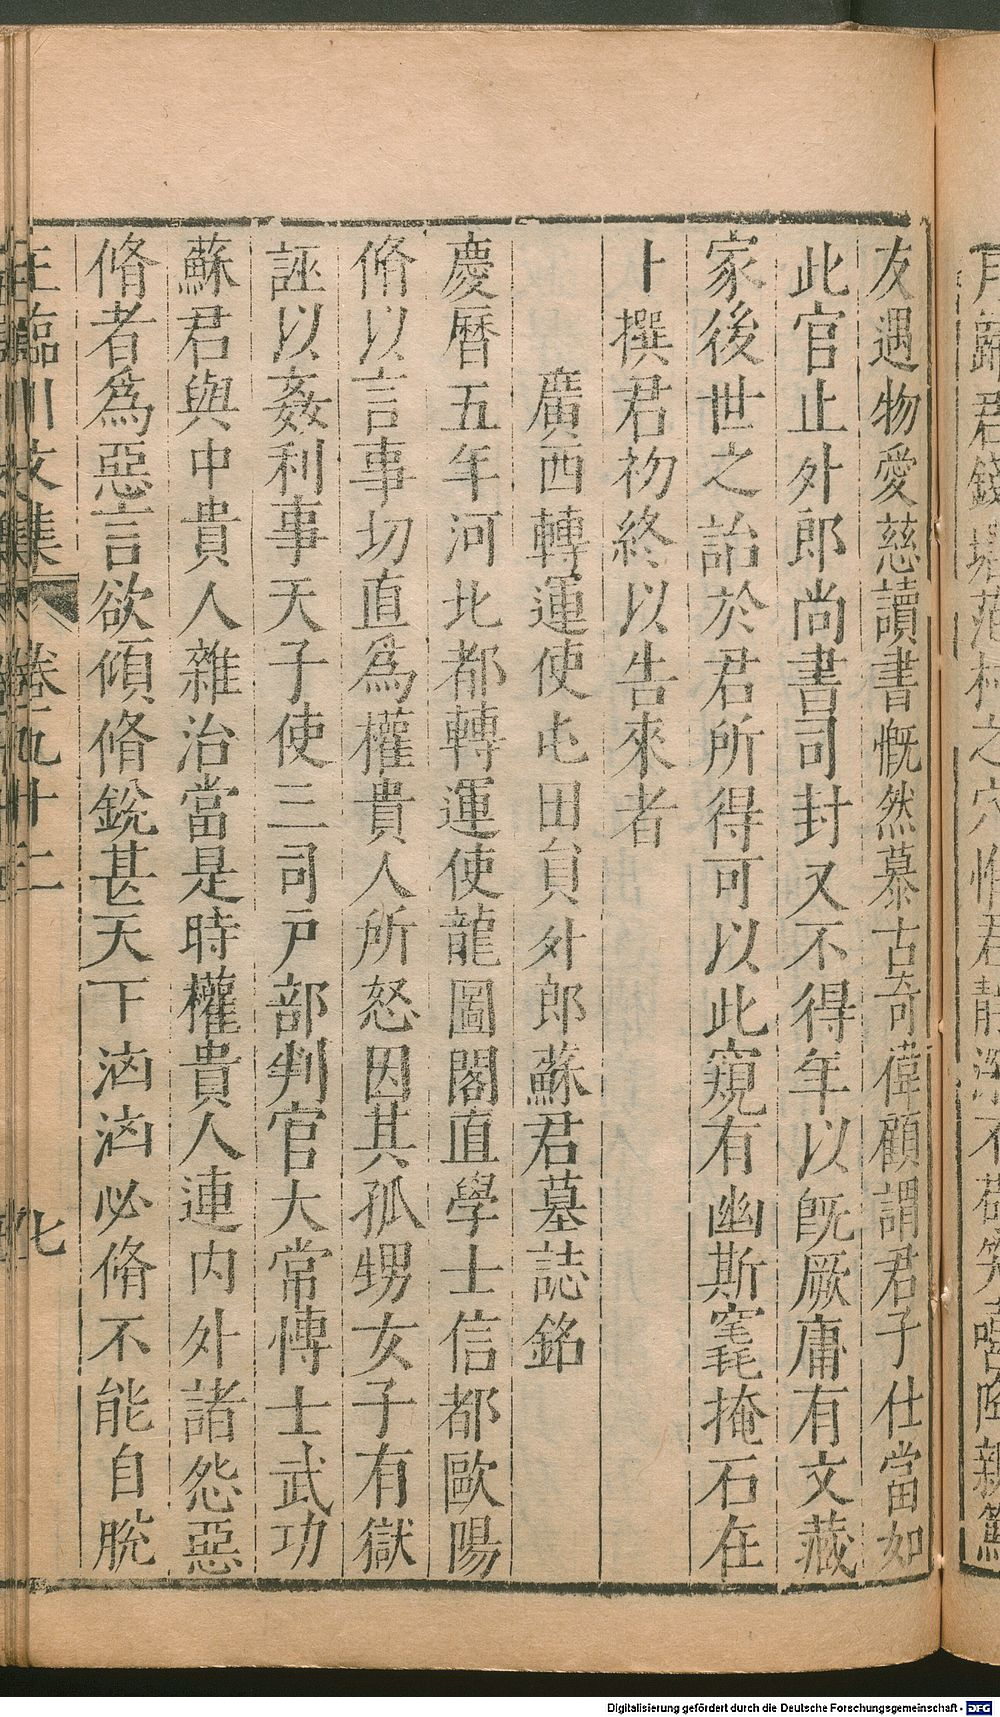 友遇物愛慈讀書慨然慕古奇偉顧謂君子仕當如
此官止外郎尚書司封又不得年以旣厥庸有文藏
家後世之詒於君所得可以此窺有幽斯窀掩石在
卜撰君初終以告來者
廣西轉運使屯田貟外郎蘇君墓誌銘
慶曆五年河北都轉運使龍圖閣直學士信都歐陽
脩以言事切直爲權貴人所怒因其孤甥女子有獄
誣以姦利事天子使三司戶部判官大常愽士武功
蘇君與中貴人雜治當是時權貴人連内外諸怨惡
脩者爲惡言欲傾脩銳甚天下洶洶必脩不能自脫
王臨川文集 卷九十二 七
Digitalisierung gefördert durch die Deutsche Forschungsgemeinschaft - DFG